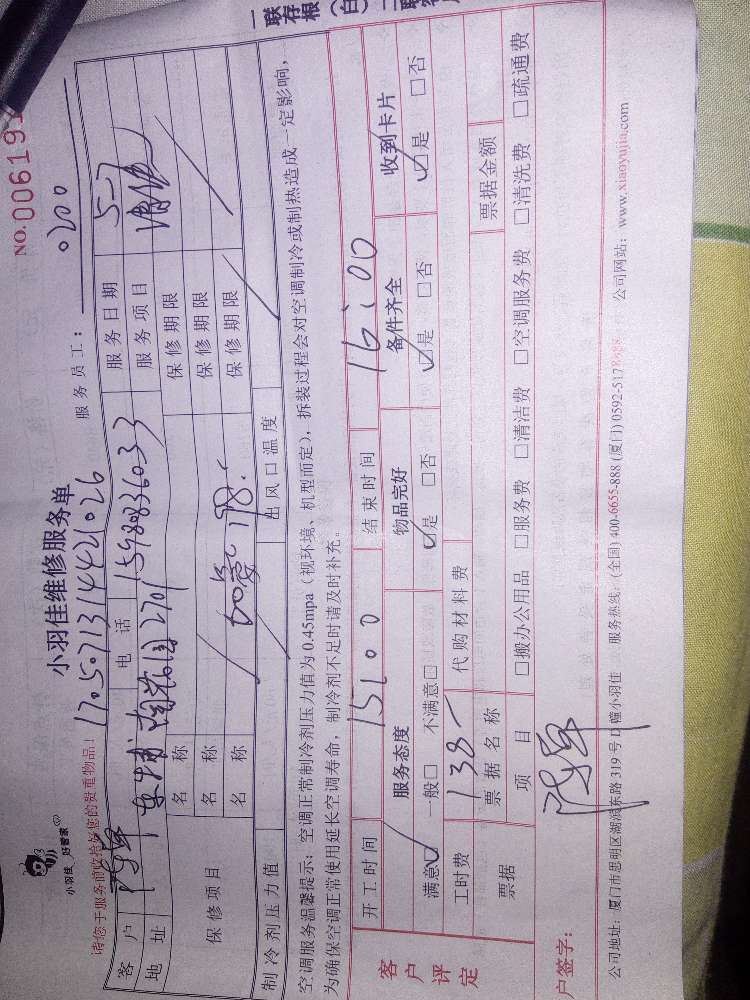 一联存根(白)二联
NO. 006191
小羽佳 好管家
小羽佳维修服务单
请您于服务前收拾好您的贵重物品!
170507131442026
服务员工: 0200
客户 电话 15980836033 服务日期 5-7
地址 2701 服务项目 清洗
保修项目 名称 保修期限
名称 保修期限
名称 保修期限
制冷剂压力值 出风口温度
空调服务温馨提示:空调正常制冷剂压力值为0.45mpa(视环境、机型而定),拆装过程会对空调制冷或制热造成一定影响,
为确保空调正常使用延长空调寿命,制冷剂不足时请及时补充。
客户评定
开工时间 15:00 结束时间 16:00
服务态度 物品完好 备件齐全 收到卡片
满意☑ 一般□ 不满意□ ☑是 □否 ☑是 □否 ☑是 □否
工时费 138- 代购材料费
票据 票据名称 票据金额
项目 □搬办公用品 □服务费 □清洁费 □空调服务费 □清洗费 □疏通费
户签字:
公司地址:厦门市思明区湖滨东路319号D幢小羽佳 服务热线:(全国)400-6655-888 (厦门)0592-517 公司网站:www.xiaoyujia.com